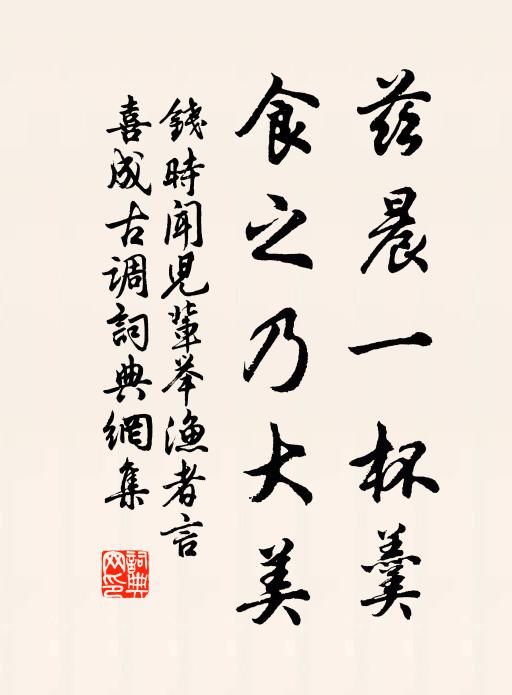 茲晨一杯羹
食之乃大美
錢時聞兒輩举漁者言
喜成古调詞典網集
詞典网印